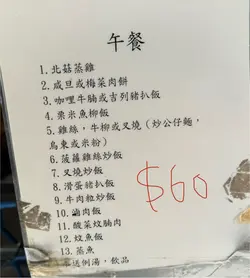 午餐
1.北菇蒸雞
2.咸旦或梅菜肉餅
3.咖哩牛腩或吉列豬扒飯
4.粟米魚柳飯
5.雞絲，牛柳或叉燒（炒公仔麵，
烏東或米粉）
6.菠蘿雞絲炒飯
7.叉燒炒飯
8.滑蛋豬扒飯
9.牛肉粒炒飯
10.滷肉飯
11.酸菜炆腩肉
12.炆魚飯
13.蒸魚
送例湯，飲品
$60